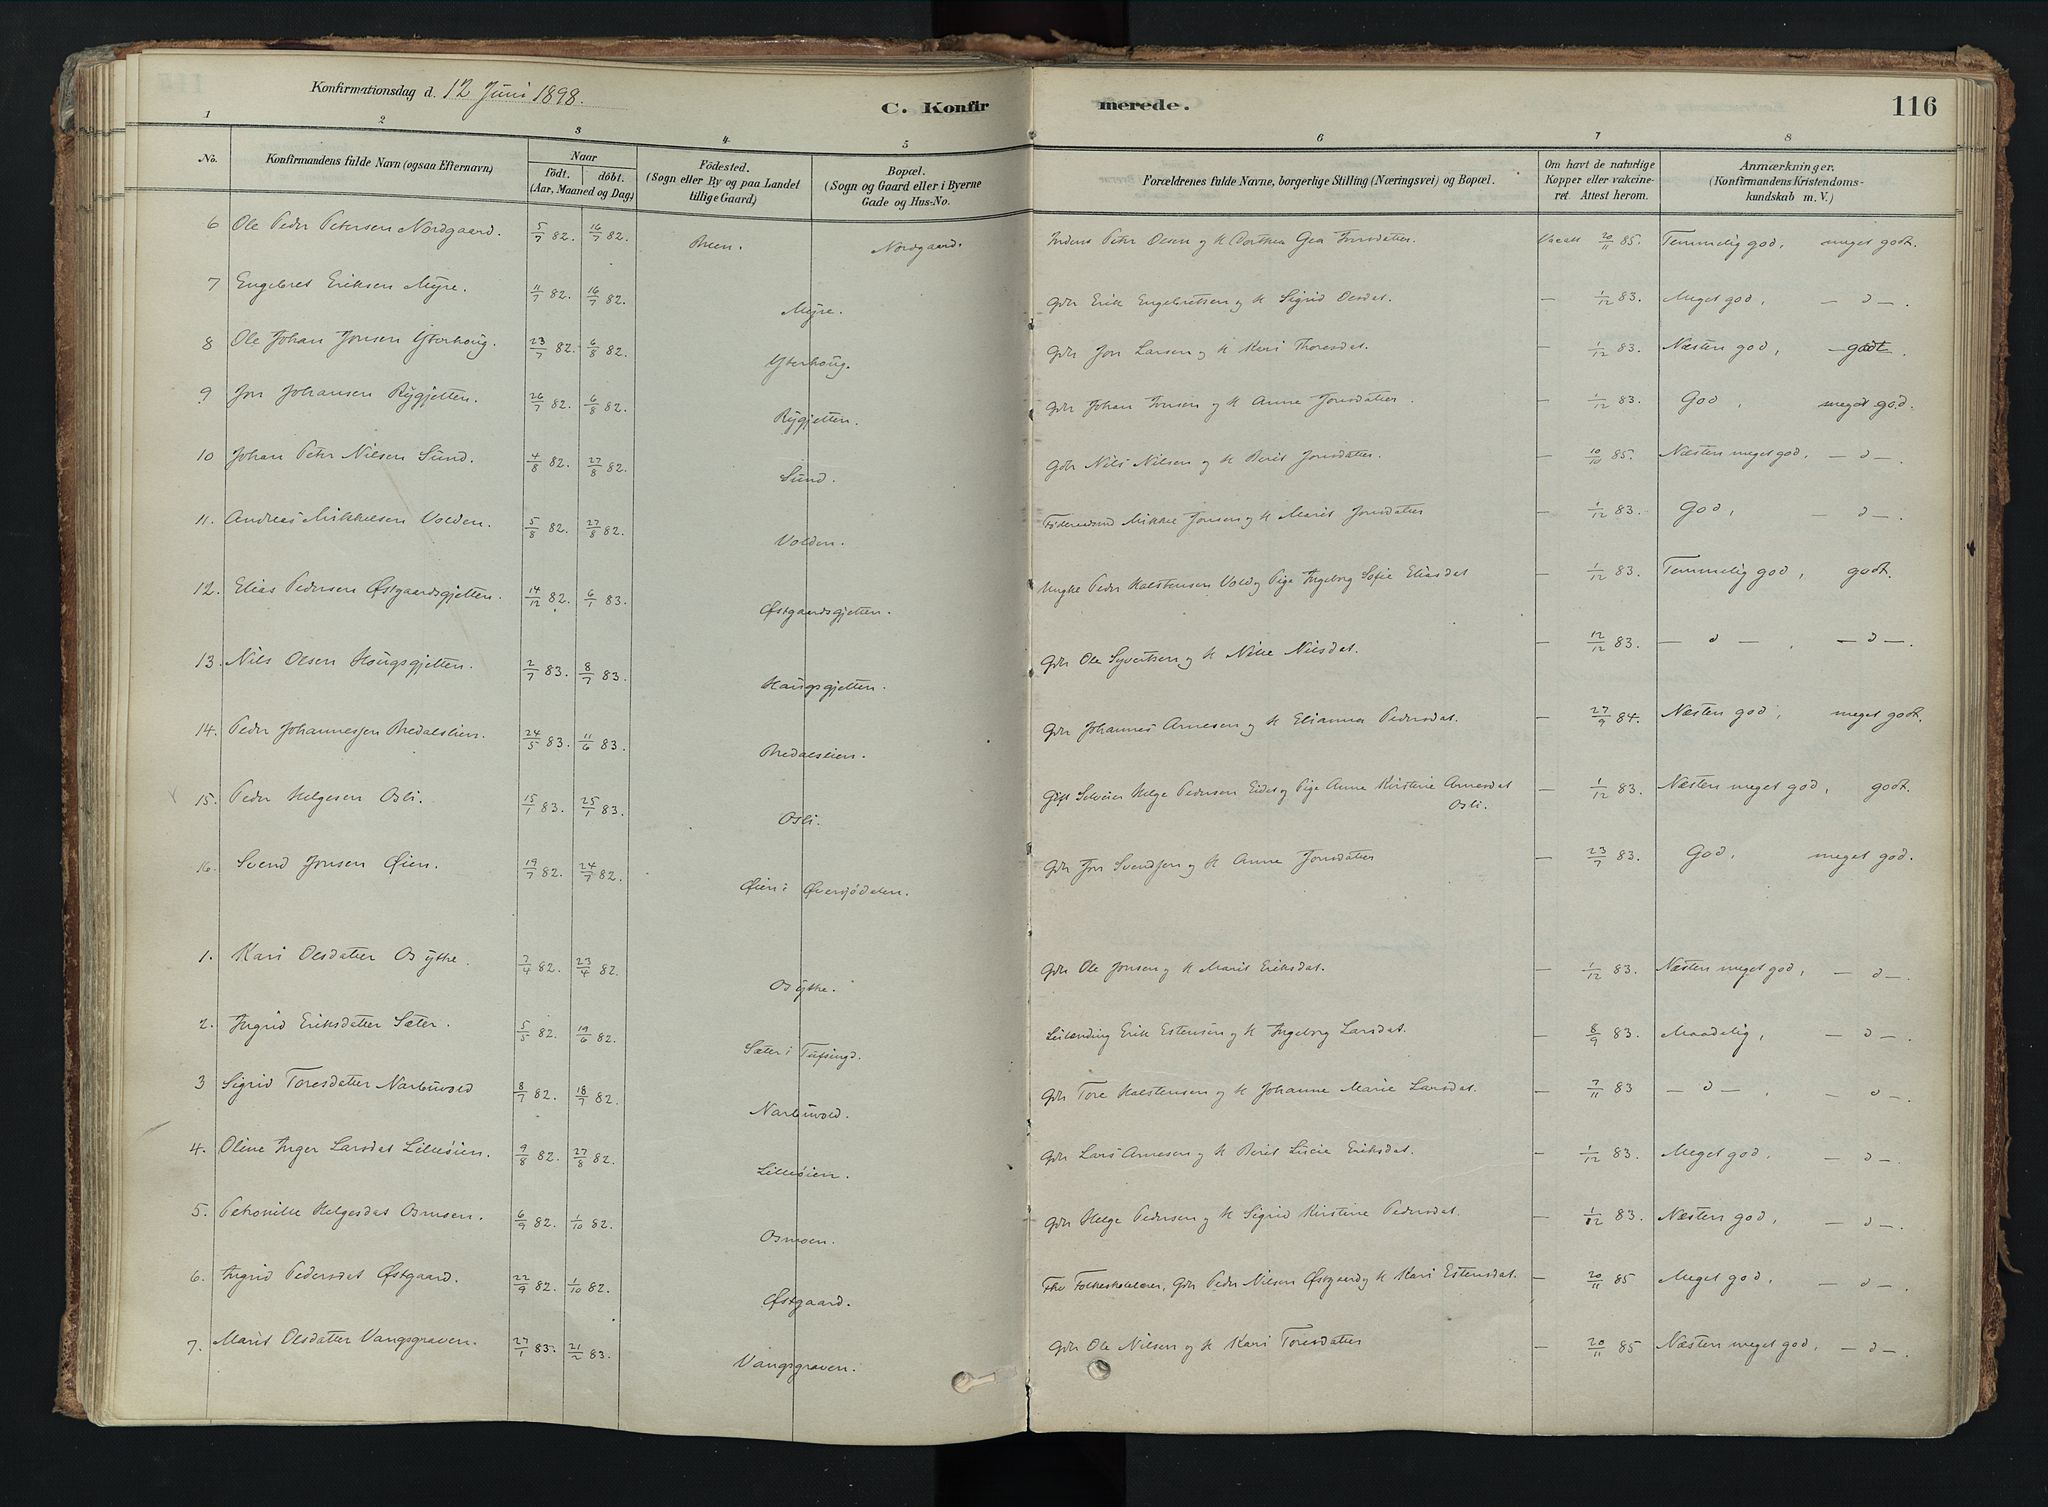 Konfirmationsdag d. 12 Juni 1898.
C. Konfirmerede.
116
1 2 3 4 5 6 7 8
No. Konfirmandens fulde Navn (ogsaa Efternavn) Naar födt. döbt. (Aar, Maaned og Dag) Födested. (Sogn eller By og paa Landet tillige Gaard) Bopæl. (Sogn og Gaard eller i Byerne Gade og Hus-No. Forældrenes fulde Navne, borgerlige Stilling (Næringsvei) og Bopæl. Om havt de naturlige Kopper eller vakcineret. Attest herom. Anmærkninger. (Konfirmandens Kristendomskundskab m. V.)
6 Ole Peder Petersen Nordgaard. 5/7 82. 16/7 82. Nordgaard. Peter Olsen og K Dorthea Gea Jonsdatter. 20/11 85. Temmelig god, meget godt.
7 Engebret Eriksen Myre. 11/7 82. 16/7 82. Myre. Gbr Erik Engebretsen og K Sigrid Olsdat. — 1/12 83. Meget god, — d —.
8 Ole Johan Jonsen Ytterhoug. 23/7 82. 6/8 82. Ytterhoug. Gbr Jon Larsen og K Kari Thoresdat. — 1/12 83. Næsten god, godt.
9 Jon Johansen Rygjetten. 26/7 82. 6/8 82. Rygjetten. Gbr Johan Jonsen og K Anne Jonsdatter. — 1/12 83. God, meget god.
10 Johan Peter Nilsen Sund. 4/8 82. 27/8 82. Sund. Gbr Nils Nilsen og K Berit Jonsdatter. — 10/10 85. Næsten meget god, — d —.
11. Andreas Mikkelsen Volden. 5/8 82. 27/8 82. Volden. Föderaadsmd Mikkel Jonsen og K Marit Jonsdatter — 1/12 83. God, — d —.
12. Elias Pedersen Østgaardsgjetten. 14/12 82. 6/1 83. Østgaardsgjetten. Ungke Peder Halstensen Vold og Pige Ingeborg Sofie Eliasdat — 1/12 83. Temmelig god, godt.
13. Nils Olsen Hougsgjetten. 2/7 83. 8/7 83. Haugsgjetten. Gbr Ole Syvertsen og K Nille Nilsdat. — 12/12 83. — d —, — d —.
14. Peder Johannesen Bredalslien. 24/5 83. 11/6 83. Bredalslien. Gbr Johannes Arnesen og K Elianna Pedersdat. — 27/9 84. Næsten god, meget godt.
15. Peder Helgesen Osli. 15/1 83. 25/1 83. Osli. Gift Selveier Helge Pedersen Eidet og Pige Anne Kirstine Arnesdat Osli. — 1/12 83. Næsten meget god, godt.
16. Svend Jonsen Øien. 19/7 82. 24/7 82. Øien i Øversjödalen. Gbr Jon Svendsen og K Anne Jonsdatter — 23/7 83. God, meget god.
1. Kari Olsdatter Osythe. 7/4 82. 23/4 82. Osythe. Gbr Ole Jonsen og K Marit Eriksdat. — 1/12 83. Næsten meget god, — d —.
2. Ingrid Eriksdatter Sæter. 5/5 82. 19/6 82. Sæter i Tufsingd. Leilænding Erik Estensen og K Ingeborg Larsdat. — 8/9 83. Maadelig, — d —.
3 Sigrid Toresdatter Narbuvold 8/7 82. 18/7 82. Narbuvold. Gbr Tore Halstensen og K Johanne Marie Larsdat. — 7/11 83 — d —, — d —.
4. Oline Inger Larsdat Lilleøien. 9/8 82. 27/8 82. Lilleøien. Gbr Lars Arnesen og K Berit Lucie Eriksdat. — 1/12 83. Meget god, — d —.
5. Petronille Helgesdat Osmoen. 6/9 82. 1/10 82. Osmoen. Gbr Helge Pedersen og K Sigrid Kirstine Pedersdat. — 1/12 83. Næsten god, — d —.
6. Ingrid Pedersdat Østgaard. 22/9 82. 1/10 82. Østgaard. Fhv Folkeskolelærer, Gbr Peder Nilsen Østgaard og K Kari Estensdat. — 20/11 85 Meget god, — d —.
7. Marit Olsdatter Vangsgraven. 27/1 83. 21/2 83. Vangsgraven. Gbr Ole Nilsen og K Kari Toresdatter — 20/11 85 Næsten meget god, — d —.